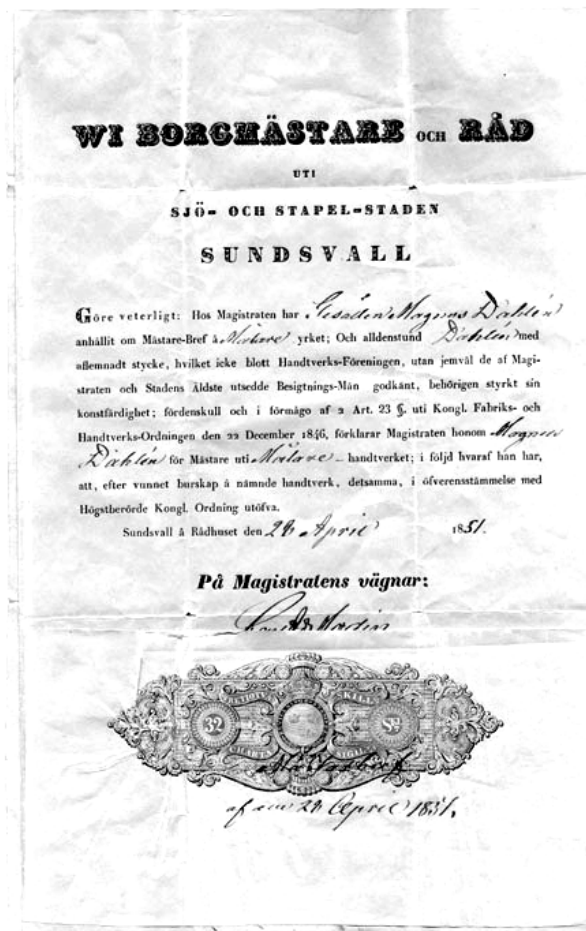 WI BORGMÄSTARE OCH RÅD
UTI
SJÖ- OCH STAPEL-STADEN
SUNDSVALL
Göre veterligt: Hos Magistraten har Gesällen Magnus Dahlén
anhållit om Mästare-Bref å Målare yrket; Och alldenstund Dahlén med
aflemnadt stycke, hvilket icke blott Handtverks-Föreningen, utan jemväl de af Magi-
straten och Stadens Äldste utsedde Besigtnings-Män godkänt, behörigen styrkt sin
konstfärdighet; fördenskull och i förmågo af 2 Art. 23 §. uti Kongl. Fabriks- och
Handtverks-Ordningen den 22 December 1846, förklarar Magistraten honom Magnus
Dahlén för Mästare uti Målare-handtverket; i följd hvaraf han har,
att, efter vunnet burskap å nämnde handtverk, detsamma, i öfverensstämmelse med
Högstberörde Kongl. Ordning utöfva.
Sundsvall å Rådhuset den 28 April 1851.
På Magistratens vägnar:
32
CHARTÆ SIGILL
28 April 1851.